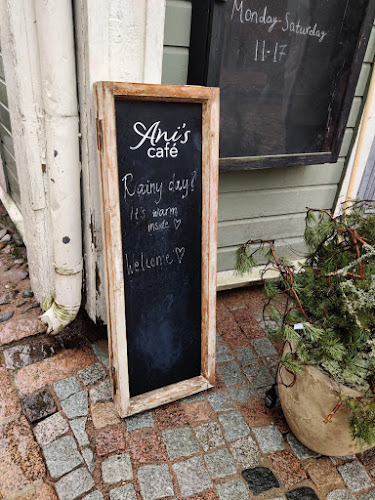 Monday-Saturday
11-17
Ani's
café
Rainy day?
It's warm
inside ♡
Welcome ♡